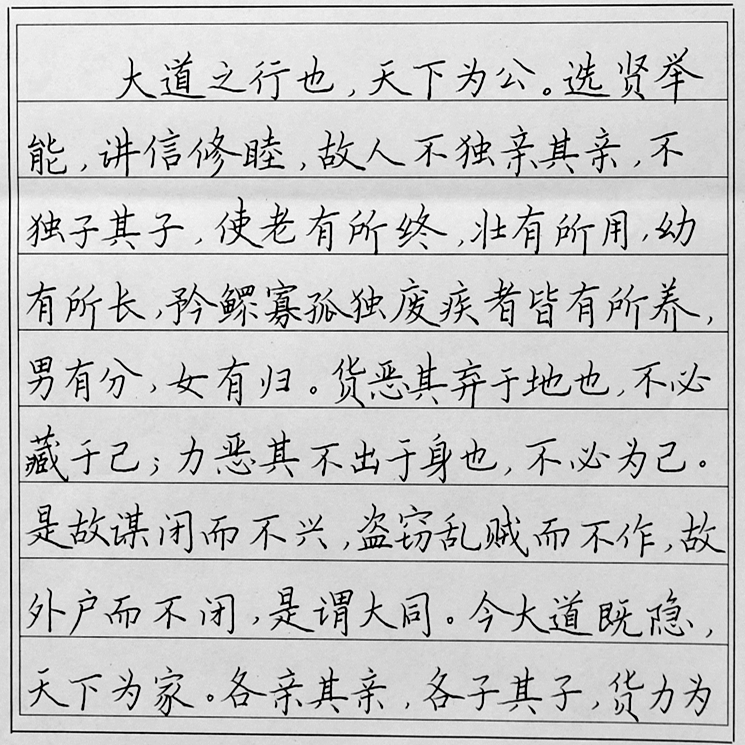 大道之行也,天下为公。选贤举
能,讲信修睦,故人不独亲其亲,不
独子其子,使老有所终,壮有所用,幼
有所长,矜鳏寡孤独废疾者皆有所养,
男有分,女有归。货恶其弃于地也,不必
藏于己;力恶其不出于身也,不必为己。
是故谋闭而不兴,盗窃乱贼而不作,故
外户而不闭,是谓大同。今大道既隐,
天下为家。各亲其亲,各子其子,货力为